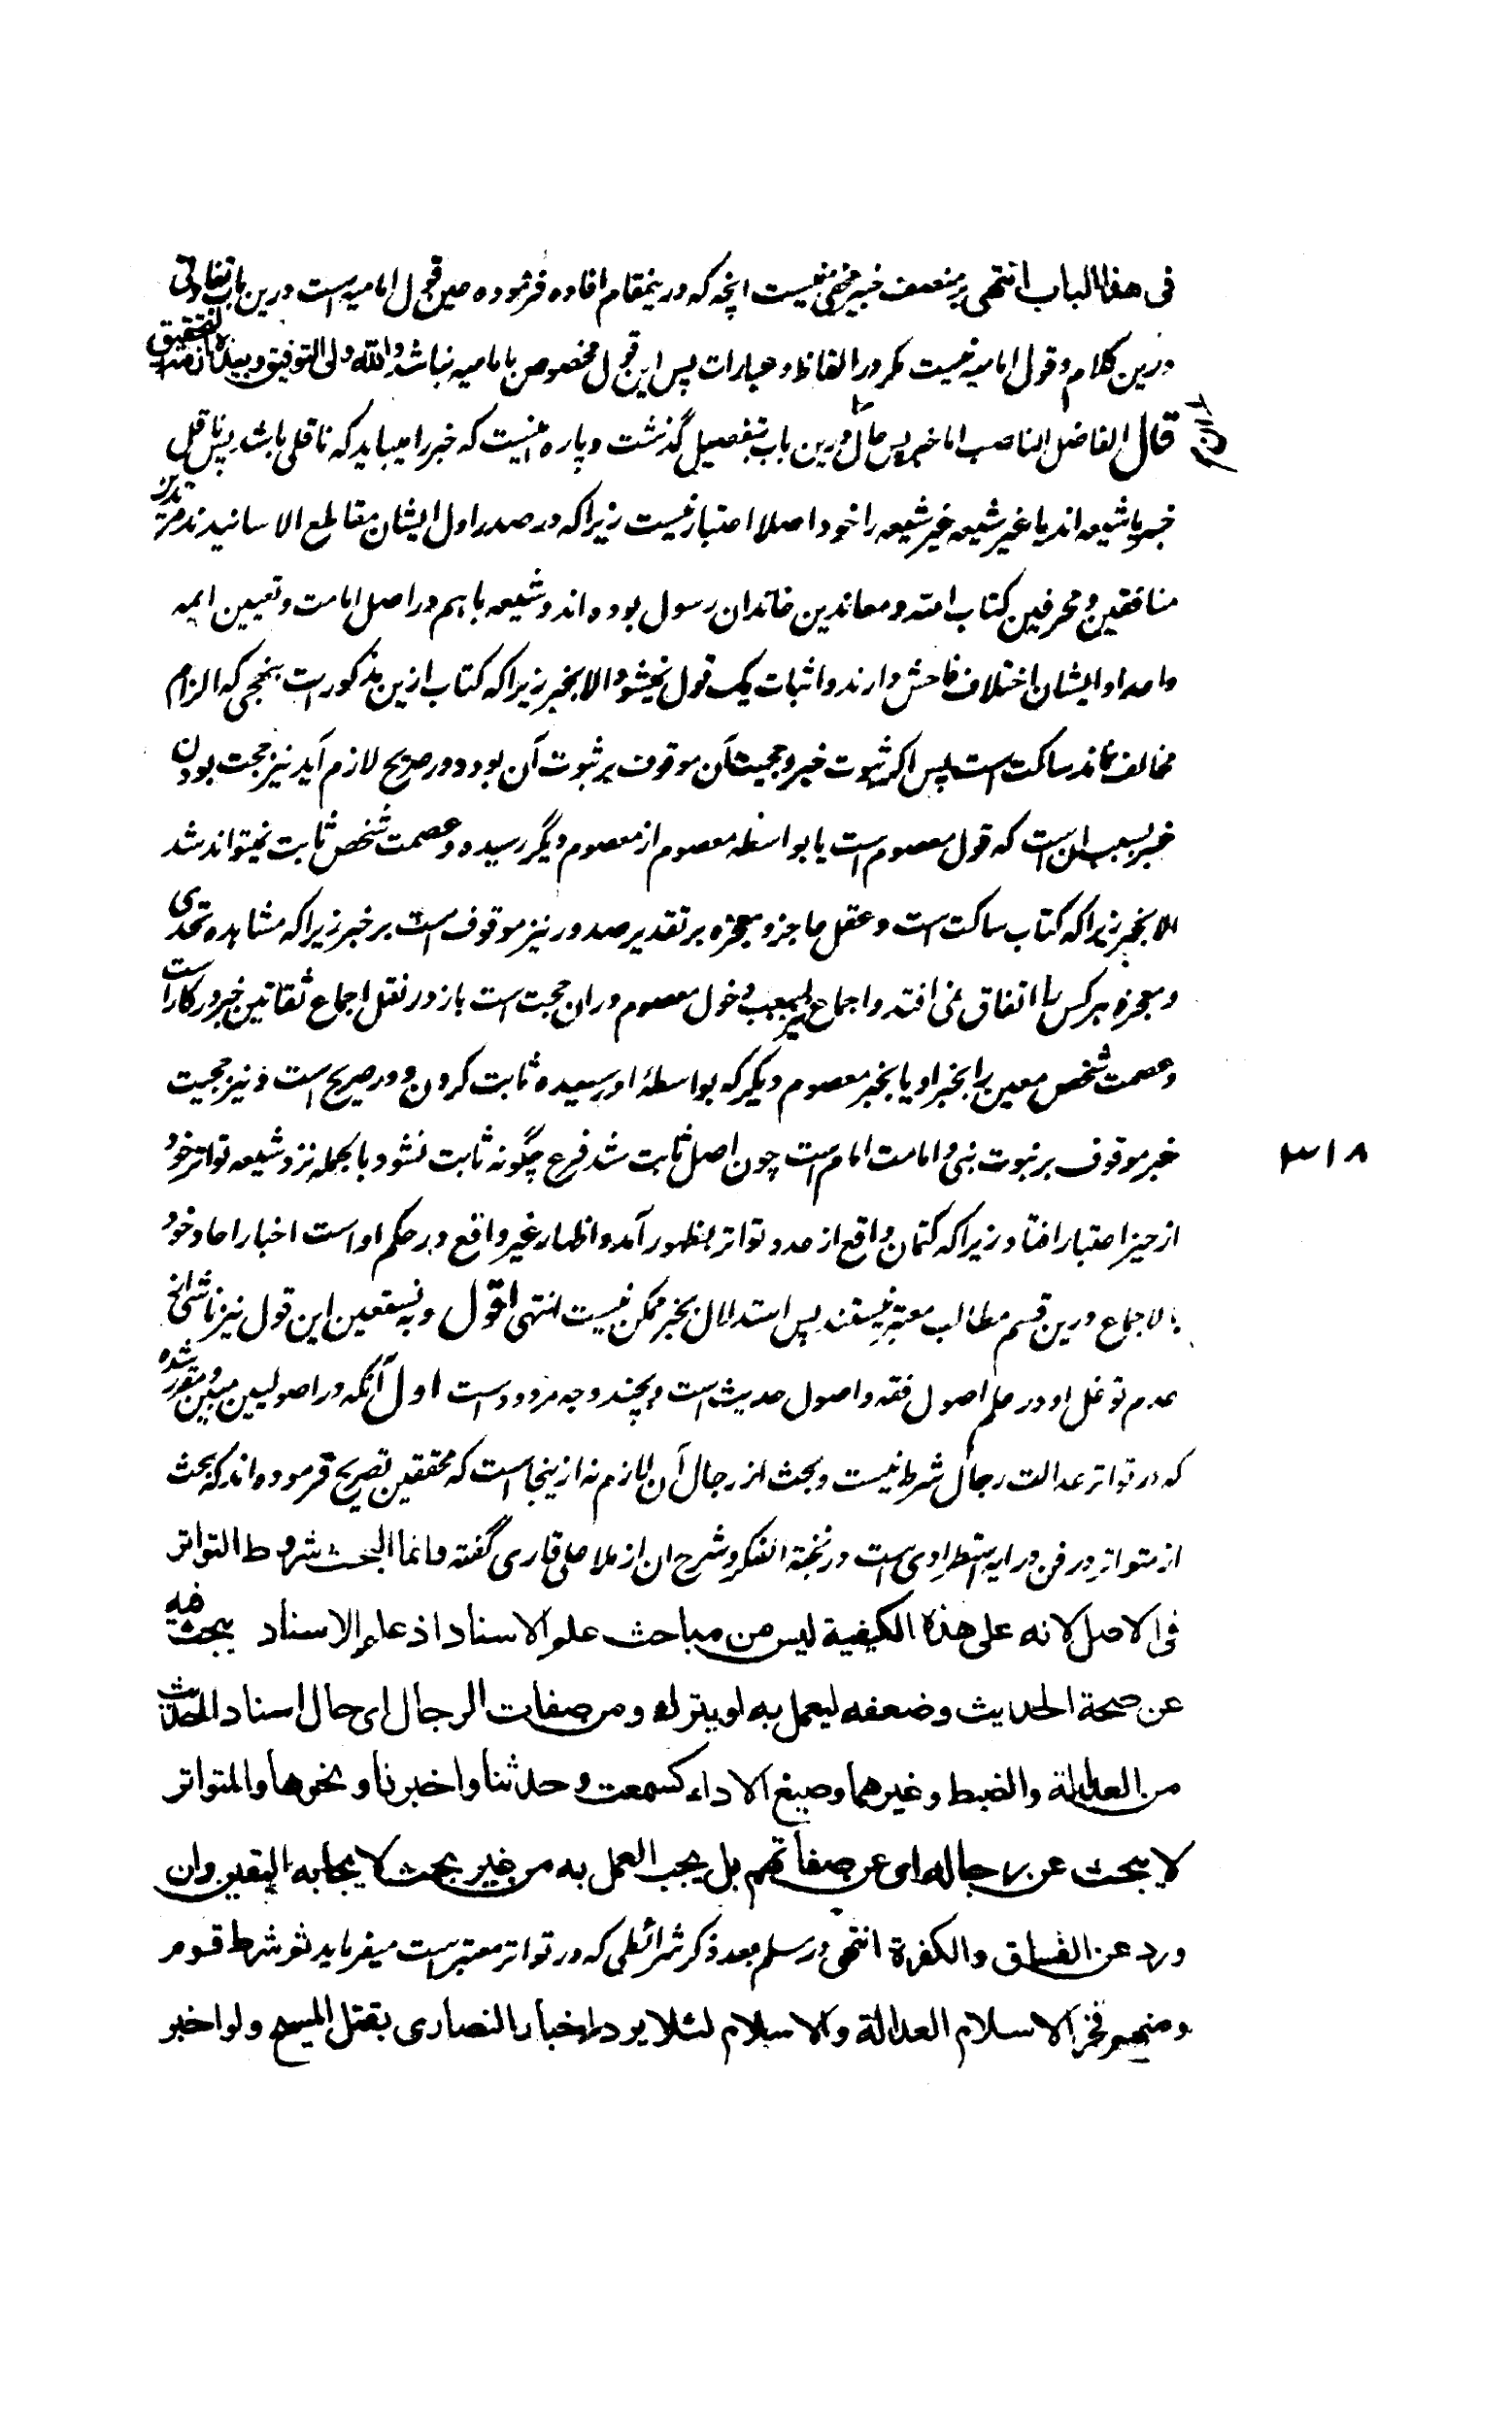 فی هذا الباب انتهی بر منصف خبیر مخفی نیست انچه که درینمقام افاده فرموده عین قول امامیه است درین باب تفاوتی
درین کلام و قول امامیه نیست مگر در الفاظ و عبارات پس این قول مخصوص بامامیه نباشد والله ولی التوفیق و بیده ازمة التحقیق
قال الفاضل الناصب اما خبر پس حال درین باب بتفصیل گذشت و پاره اینست که خبر را میباید که ناقلی باشد پس ناقل
خبر یا شیعه اند یا غیر شیعه غیر شیعه را خود اصلا اعتبار نیست زیرا که در صدر اول ایشان مقاطع الاسانید اند مرتدین
منافقین و محرفین کتاب الله و معاندین خاندان رسول بوده اند و شیعه باهم در اصل امامت و تعیین ایمه
و اعداد ایشان اختلاف فاحش دارند و اثبات یک قول نمیشود الا بخبر زیرا که کتاب ازین مذکورات بنهجی که الزام
مخالف نماند ساکت است پس اگر ثبوت خبر و حجیت آن موقوف بر ثبوت آن بود دور صریح لازم آید نیز حجت بودن
خبر بسبب ان است که قول معصوم است یا بواسطه معصوم از معصوم دیگر رسیده و عصمت شخص ثابت نمیتواند شد
الا بخبر زیرا که کتاب ساکت است و عقل عاجز و معجزه بر تقدیر صدور نیز موقوف است بر خبر زیرا که مشاهده تحدی
و معجزه هر کس را اتفاق نمی افتد و اجماع نیز بسبب دخول معصوم دران حجت است باز در نقل اجماع ثقاتین خبر در کار است
و عصمت شخص معین را بخبر او یا بخبر معصوم دیگر که بواسطهٔ او رسیده ثابت کردن دور صریح است و نیز حجیت
خبر موقوف بر نبوت نبی و امامت امام است چون اصل ثابت نشد فرع چگونه ثابت نشود بالجمله نزد شیعه تواتر خود
از حیز اعتبار افتاد زیرا که کتمان واقع از عدد تواتر بظهور آمد و اظهار غیر واقع در حکم او است اخبار احاد خود
بالاجماع درین قسم مطالب معتبر نیستند پس استدلال بخبر ممکن نیست انتهی اقول و به نستعین این قول نیز ناشی از
عدم توغل او در علم اصول فقه و اصول حدیث است و بچند وجه مردود است اول آنکه در اصولیین مبین و مقرر شده
که در تواتر عدالت رجال شرط نیست و بحث از رجال آن لازم نه ازینجا است که محققین تصریح فرموده اند که بحث
از متواتر در فن درایه استطرادی است در نخبة الفکر و شرح ان از ملا علی قاری گفته وانما البحث شروط التواتر
فی الاصل لانه علی هذه الکیفیة لیس من مباحث علم الاسناد اذ علم الاسناد یبحث فیه
عن صحة الحدیث وضعفه لیعمل به او یترك ومن صفات الرجال ای حال اسناد الحدیث
من العدالة والضبط وغیرهما وصیغ الاداء کسمعت وحدثنا واخبرنا ونحوها والمتواتر
لا یبحث عن رجاله ای عن صفاتهم بل یجب العمل به من غیر بحث لایجابه الیقین وان
ورد عن الفساق والکفرة انتهی در سلم بعد ذکر شرائطی که در تواتر معتبر است میفرماید ثم شرط قوم
ومنهم فخر الاسلام العدالة والاسلام لئلا یرد اخبار النصاری بقتل المسیح ولو اخبر
۳۱۸